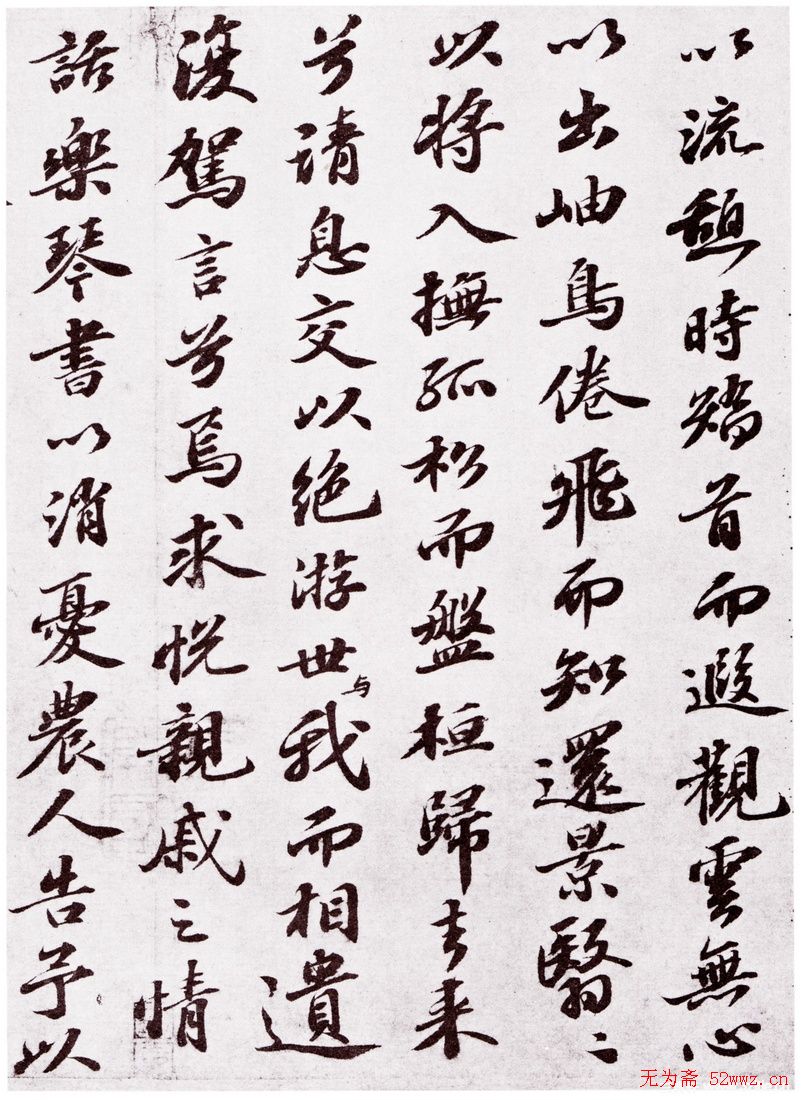 以流憩時矯首而遐觀雲無心
以出岫鳥倦飛而知還景翳〻
以將入撫孤松而盤桓歸去来
兮請息交以絶游世与我而相遺
復駕言兮焉求悦親戚之情
話樂琴書以消憂農人告予以
无为斋 52wwz.cn